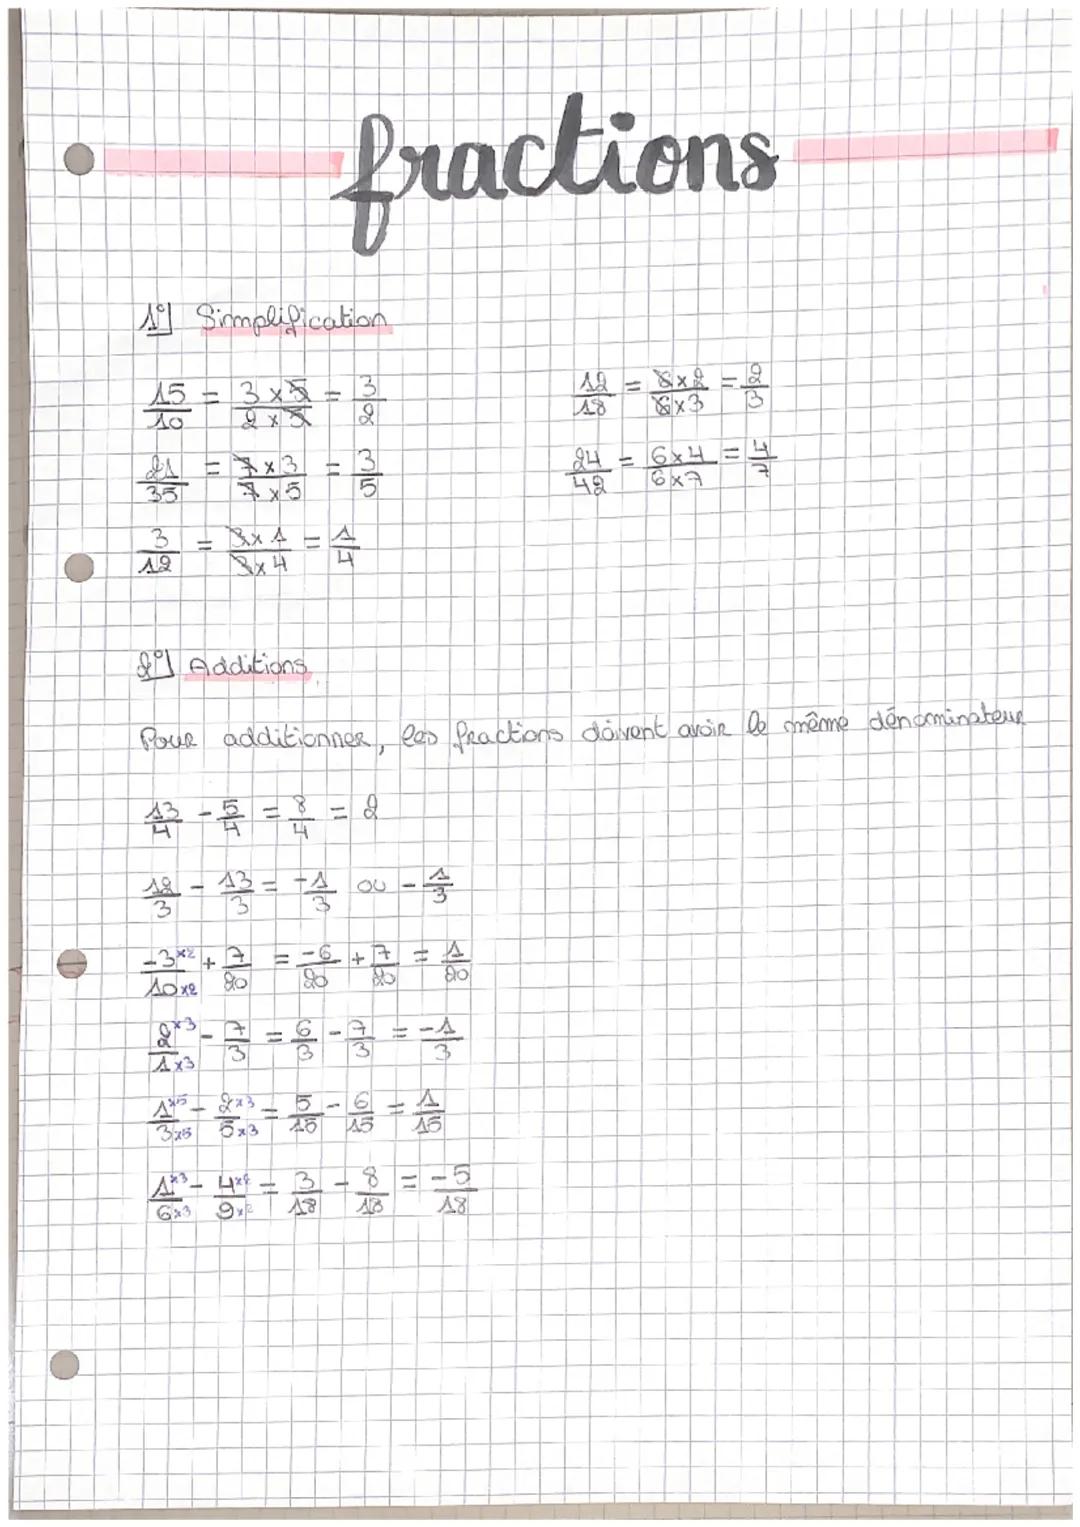 fractions
1°] Simplification
15/10 = 3×5/2×5 = 3/2
12/18 = 6×2/6×3 = 2/3
21/35 = 7×3/7×5 = 3/5
24/42 = 6×4/6×7 = 4/7
3/12 = 3×1/3×4 = 1/4
2°] Additions
Pour additionner, les fractions doivent avoir le même dénominateur
13/4 - 5/4 = 8/4 = 2
12/3 - 13/3 = -1/3 ou - 1/3
-3×2/10×2 + 7/20 = -6/20 + 7/20 = 1/20
2×3/1×3 - 7/3 = 6/3 - 7/3 = -1/3
1×5/3×5 - 2×3/5×3 = 5/15 - 6/15 = 1/15
1×3/6×3 - 4×2/9×2 = 3/18 - 8/18 = -5/18